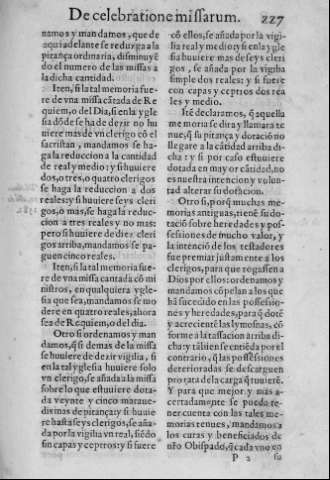 De celebratione missarum. 227
namos y mandamos, que de
aqui adelante se reduzga a la
pitança ordinaria, disminuyẽ
do el numero de las missas a
la dicha cantidad.
Iten, si la tal memoria fue-
re de vna missa cãtada de Re
quiem, o del Dia, si en la ygle
sia dõde se ha de dezir no hu
uiere mas de vn clerigo cõ el
sacristan, mandamos se ha-
ga la reduccion a la cantidad
de real y medio: y si huuiere
dos, o tres, o quatro clerigos
se haga la reduccion a dos
reales: y si huuiere seys cleri
gos, o mas, se haga la reduc-
cion a tres reales y no mas:
pero si huuiere de diez cleri
gos arriba, mandamos se pa-
guen cinco reales.
Iten, si la tal memoria fue-
re de vna missa cantada cõ mi
nistros, en qualquiera ygle-
sia que sea, mandamos se mo
dere en quatro reales, ahora
sea de Requiem, o del dia.
Otro si ordenamos y man
damos, q̃ si demas de la missa
se huuiere de dezir vigilia, si
en la tal yglesia huuiere solo
vn clerigo, se añada a la missa
sobre lo que estuuiere dota-
da veynte y cinco maraue-
dis mas de pitança: y si huuie
re hasta seys clerigos, se aña-
da por la vigilia vn real, siẽdo
sin capas y ceptros: y si fuere
cõ ellos, se añada por la vigi-
lia real y medio: y si en la ygle
sia huuiere mas de seys cleri
gos, se añada por la vigilia
simple dos reales: y si fuere
con capas y ceptros dos rea
les y medio.
Itẽ declaramos, q̃ aquella
memoria se dira y llamara te
nue, q̃ su pitança y dotaciõ no
llegare a la cãtidad arriba di-
cha: y si por caso estuuiere
dotada en mayor cãtidad, no
es nuestra intencion y volun-
tad alterar su dotacion.
Otro si, porq̃ muchas me-
morias antiguas, tienẽ su do-
taciõ sobre heredades y pos-
sessiones de mucho valor, y
la intenciõ de los testadores
fue premiar justamente a los
clerigos, para que rogassen a
Dios por ellos: ordenamos y
mandamos cõpelan a los que
hã sucedido en las possessio-
nes y heredades, para q̃ dotẽ
y acrecientẽ las lymosnas, cõ
forme a la tassacion arriba di-
cha: y tãbien se entiẽda por el
contrario, q̃ las possessiones
deterioradas se descarguen
pro rata de la carga q̃ tuuierẽ.
Y para que mejor y mas a-
certadamẽte se pueda te-
ner cuenta con las tales me-
morias tenues, mandamos a
los curas y beneficiados de
nr̃o Obispado, q̃ cada vno en
P 2 su